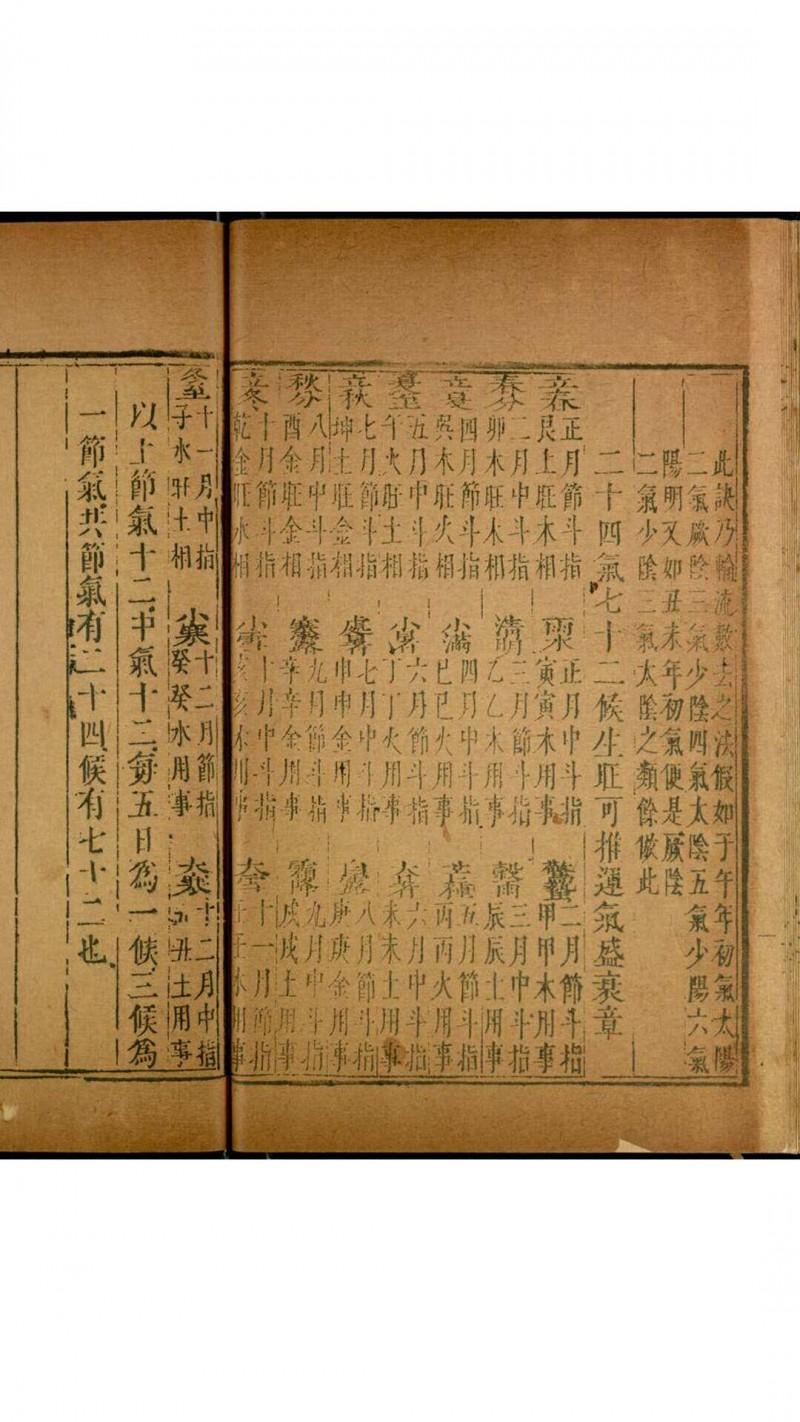 此訣乃輪流數去之法假如于午年初氣太陽
二氣厥陰三氣少陰四氣太陰五氣少陽六氣
陽明又如丑未年初氣便是厥陰
二氣少陰三氣太陰之類餘倣此
二十四氣七十二候生旺可推運氣盛衰章
立春 正月節斗指艮土旺木相 雨水 正月中斗指寅寅木用事 驚蟄 二月節斗指甲甲木用事
春分 二月中斗指卯木旺木相 清明 三月節斗指乙乙木用事 穀雨 三月中斗指辰辰土用事
立夏 四月節斗指巽木旺火相 小滿 四月中斗指巳巳火用事 芒種 五月節斗指丙丙火用事
夏至 五月中斗指午火旺土相 小暑 六月節斗指丁丁火用事 大暑 六月中斗指未未土用事
立秋 七月節斗指坤土旺金相 處暑 七月中斗指申申金用事 白露 八月節斗指庚庚金用事
秋分 八月中斗指酉金旺金相 寒露 九月節斗指辛辛金用事 霜降 九月中斗指戌戌土用事
立冬 十月節斗指乾金旺水相 小雪 十月中斗指亥亥水用事 大雪 十一月節指壬壬水用事
冬至 十一月中指子水旺土相 小寒 十二月節指癸癸水用事 大寒 十二月中指丑丑土用事
以上節氣十二中氣十二每五日為一候三候為
一節氣共節氣有二十四候有七十二也